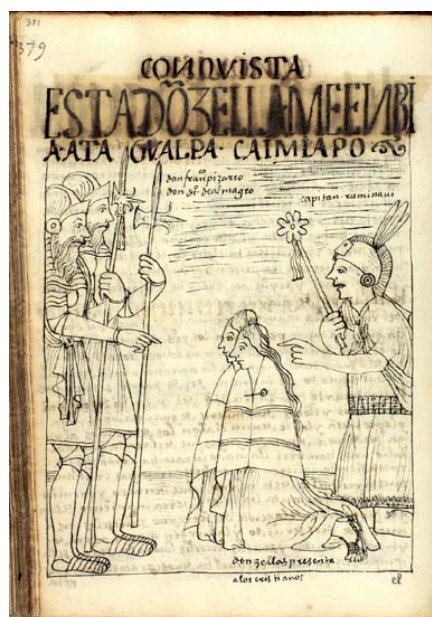 381
379
CONQVISTA
ESTA DŌZELLA ME ENBI
A·ATAGVALPA·CAIMI APO
don franco pizarro
don do de almagro
capitan · ruminaui
donzellas presenta
a los cristianos
el